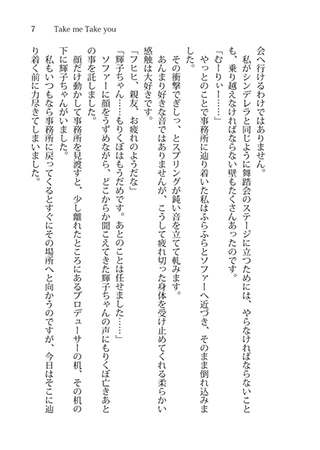 7　Take me Take you
会へ行けるわけではありません。
　私がシンデレラと同じように舞踏会のステージに立つためには、やらなければならないこと
も、乗り越えなければならない壁もたくさんあったのです。
「むーりぃー……」
　やっとのことで事務所に辿り着いた私はふらふらとソファーへ近づき、そのまま倒れ込みま
した。
　その衝撃でぎしっ、とスプリングが鈍い音を立てて軋みます。
　あんまり好きな音ではありませんが、こうして疲れ切った身体を受け止めてくれる柔らかい
感触は大好きです。
「フヒヒ、親友、お疲れのようだな」
「輝子ちゃん……もりくぼはもうだめです。あとのことは任せました……」
　ソファーに顔をうずめながら、どこからか聞こえてきた輝子ちゃんの声にもりくぼ亡きあと
の事を託しました。
　顔だけ動かして事務所を見渡すと、少し離れたところにあるプロデューサーの机、その机の
下に輝子ちゃんがいました。
　私もいつもなら事務所に戻ってくるとすぐにその場所へと向かうのですが、今日はそこに辿
り着く前に力尽きてしまいました。